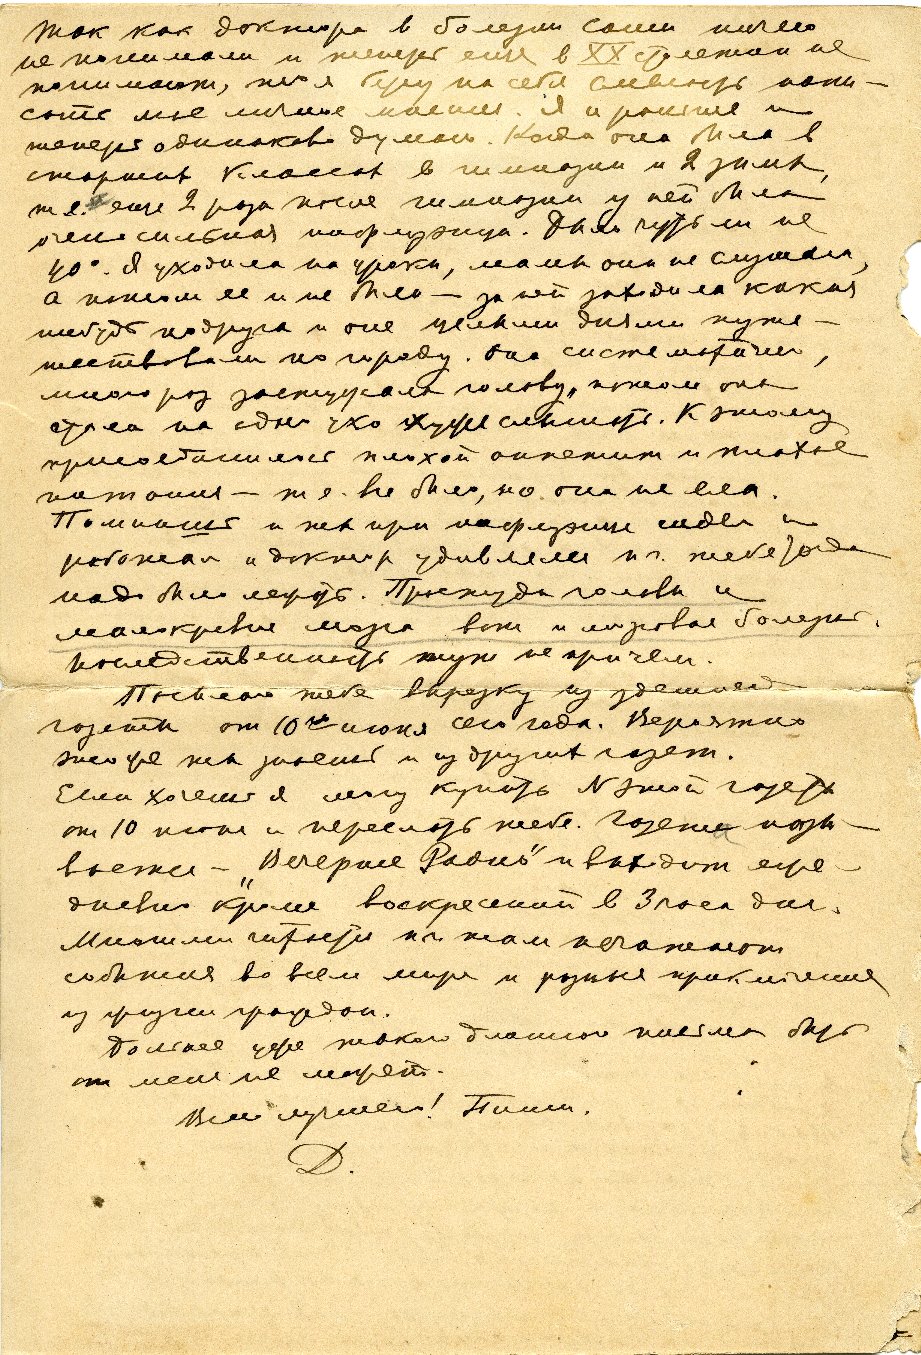 Так как доктора в болезни Сани ничего
не понимали и теперь ещё в XX столетии не
понимают, то я беру на себя смелость напи-
сать мое личное мнение. Я и раньше и
теперь одинаково думаю. Когда она была в
старших классах в гимназии и 2 зимы,
т.е. еще 2 раза после гимназии у ней была
очень сильная инфлуэнца. Было чуть ли не
40°. Я уходила на уроки, мамы она не слушала,
а потом ее и не было — за ней заходила какая
нибудь подруга и оне целыми днями путе-
шествовали по городу. Она систематично,
много раз застужала голову, потом она
стала на одно ухо хуже слышать. К этому
присоединился плохой аппетит и плохое
питание — т.е. все было, но она не ела.
Помнишь и ты при инфлуэнце сидел и
работал и доктор удивлялся т.к. тебе тогда
надо было лежать. Простуда головы и
малокровие мозга вот и мозговая болезнь.
Наследственность тут не причем.
Посылаю тебе вырезку из здешней
газеты от 10го июня сего года. Вероятно
это же ты знаешь и из других газет.
Если хочешь я могу купить N этой газеты
от 10 июня и переслать тебе. Газета назы-
вается — „Вечернее Радио" и выходит еже-
дневно кроме воскресений в 3 часа дня.
Многими читается т.к. там печатают
события во всем мире и разные приключения
из жизни граждан.
Больше уже такого длинного письма быть
от меня не может.
Всего лучшего! Пиши.
Д.